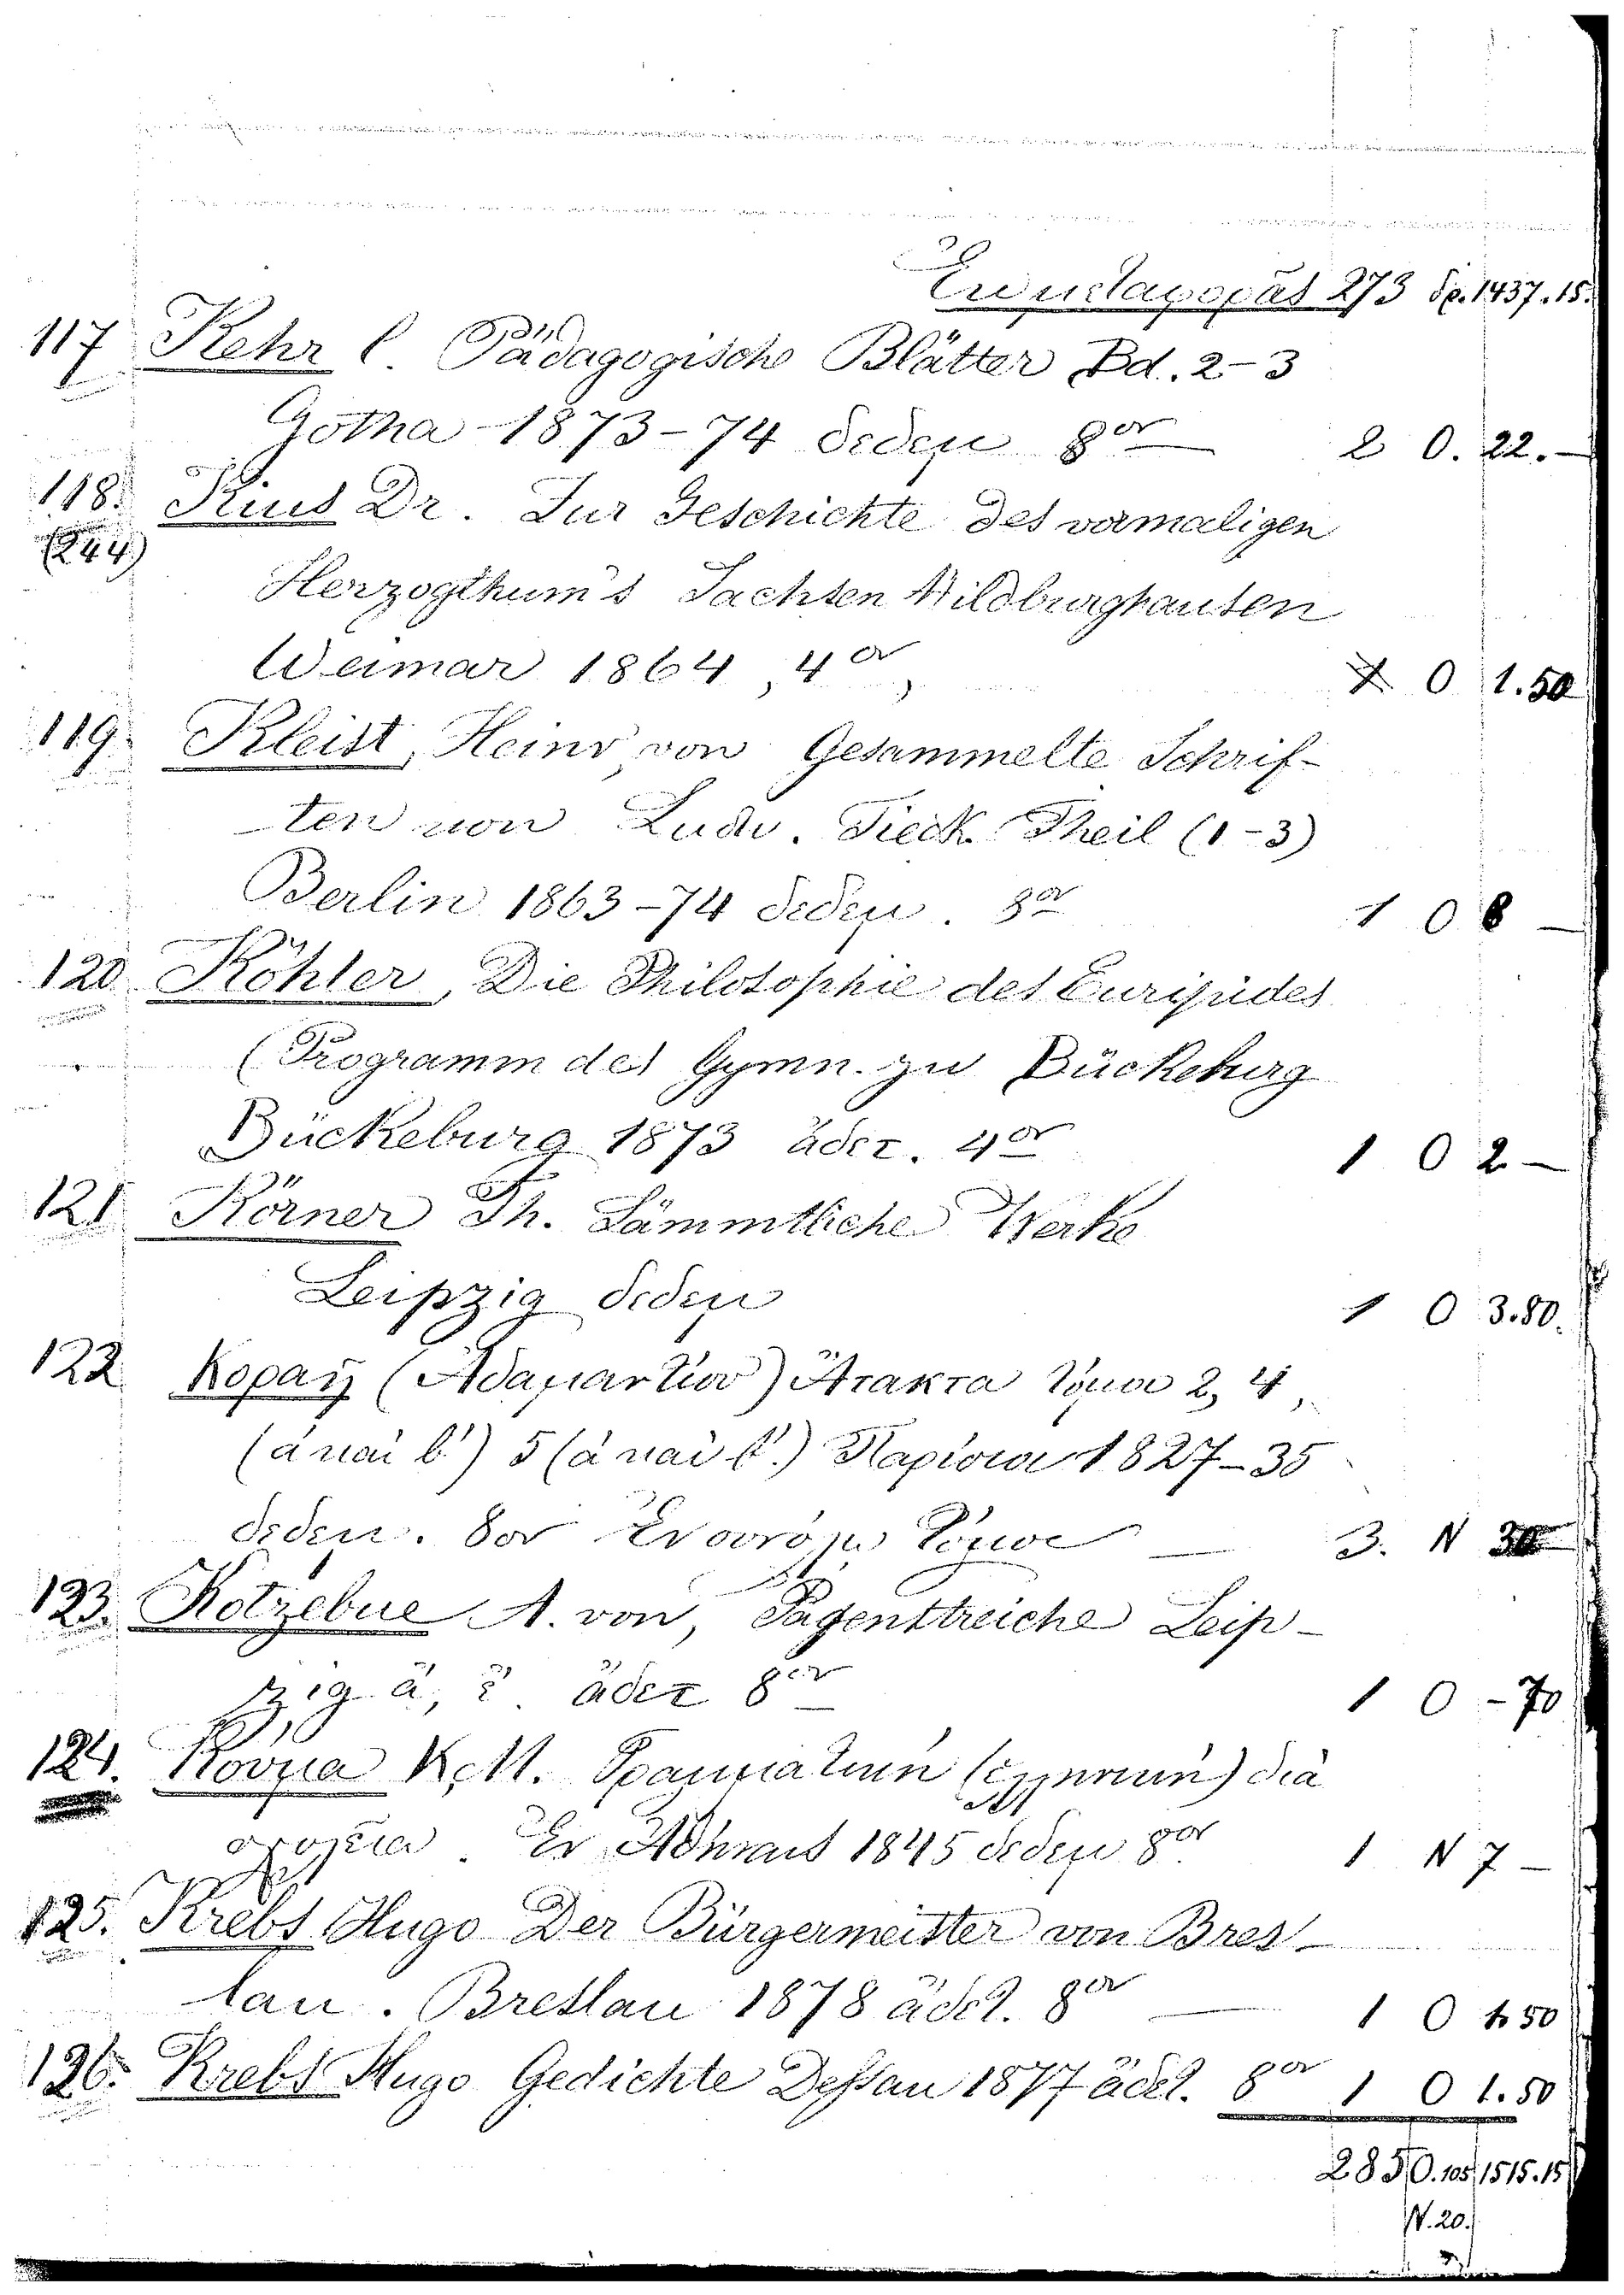 Ἐκ μεταφορᾶς 273 δρ. 1437.15.
117 Kehr C. Pädagogische Blätter Bd. 2-3
Gotha 1873-74 δεδεμ 8ον 2 O. 22.—
118. Kius Dr. Zur Geschichte des vormaligen
(244)
Herzogthum's Sachsen Hildburghausen
Weimar 1864, 4ον, 1 O 1.50
119. Kleist, Heinr, von Gesammelte Schrif-
ten von Ludw. Tieck Theil (1-3)
Berlin 1863-74 δεδεμ. 8ον 1 O 8 —
120 Köhler, Die Philosophie des Euripides
(Programm des Gymn. zu Bückeburg
Bückeburg 1873 ἄδετ. 4ον 1 O 2 —
121 Körner Th. Sämmtliche Werke
Leipzig δεδεμ 1 O 3.80.
122 Κοραῆ (Ἀδαμαντίου) Ἄτακτα τόμοι 2, 4,
(ά καὶ β') 5 (ά καὶ β'.) Παρίσιοι 1827-35
δεδεμ. 8ον 3. N 30
123. Kotzebue A. von, Pagenstreiche Leip-
zig ἄ, ἔ. ἄδετ 8ον 1 O - 70
124. Κούμα Κ. Μ. Γραμματικὴ διὰ
σχολεῖα. Ἐν Ἀθήναις 1845 δεδεμ 8ον. 1 N 7 —
125. Krebs Hugo Der Bürgermeister von Bres-
lau. Breslau 1878 ἄδετ. 8ον 1 O 1.50
126. Krebs Hugo Gedichte Deßau 1877 ἄδετ. 8ον 1 O 1.50
285 O.105 1515.15
N.20.